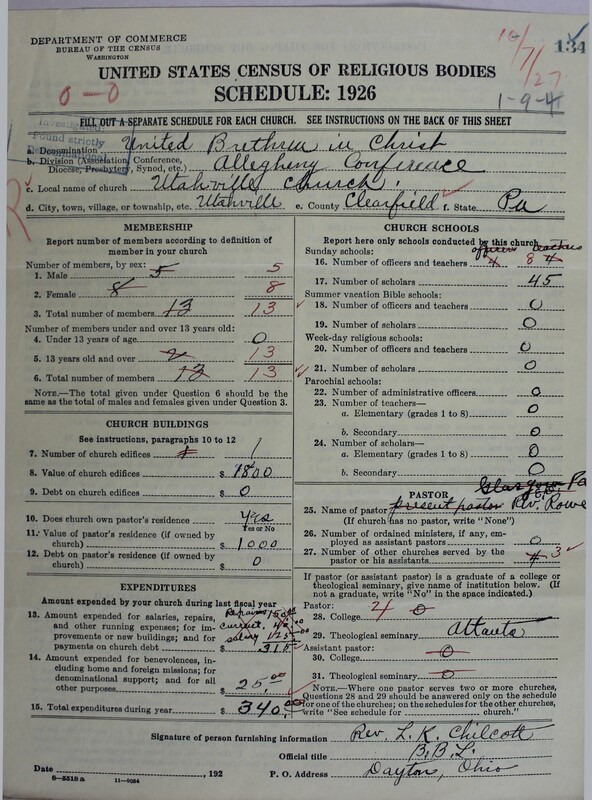 DEPARTMENT OF COMMERCE
BUREAU OF THE CENSUS
WASHINGTON
10/7/27
134
UNITED STATES CENSUS OF RELIGIOUS BODIES
SCHEDULE: 1926
0-0
1-9-4
FILL OUT A SEPARATE SCHEDULE FOR EACH CHURCH. SEE INSTRUCTIONS ON THE BACK OF THIS SHEET
Found strictly
a. Denomination United Brethren in Christ
b. Division (Association, Conference, Diocese, Presbytery, Synod, etc.) Allegheny Conference
c. Local name of church Utahville Church
d. City, town, village, or township, etc. Utahville e. County Clearfield f. State Pa
MEMBERSHIP
Report number of members according to definition of
member in your church
Number of members, by sex:
1. Male 5 5
2. Female 8 8
3. Total number of members 13 13
Number of members under and over 13 years old:
4. Under 13 years of age 0
5. 13 years old and over 13
6. Total number of members 13 13
NOTE.—The total given under Question 6 should be
same as the total of males and females given under Question 3.
CHURCH BUILDINGS
See instructions, paragraphs 10 to 12
7. Number of church edifices 1
8. Value of church edifices $ 1800
9. Debt on church edifices $ 0
10. Does church own pastor's residence Yes
Yes or No
11. Value of pastor's residence (if owned by
church) $ 1000
12. Debt on pastor's residence (if owned by
church) $ 0
EXPENDITURES
Amount expended by your church during last fiscal year
13. Amount expended for salaries, repairs,
and other running expenses; for im-
provements or new buildings; and for
payments on church debt
Repairs 150.00
current
salary 125.00
$ 315
14. Amount expended for benevolences,
including home and foreign missions; for
denominational support; and for all
other purposes $ 25.00
15. Total expenditures during year $ 340.00
CHURCH SCHOOLS
Report here only schools conducted by this church
officers teachers
Sunday schools:
16. Number of officers and teachers 4 8 4
17. Number of scholars 45
Summer vacation Bible schools:
18. Number of officers and teachers 0
19. Number of scholars 0
Week-day religious schools:
20. Number of officers and teachers 0
21. Number of scholars 0
Parochial schools:
22. Number of administrative officers 0
23. Number of teachers—
a. Elementary (grades 1 to 8) 0
b. Secondary 0
24. Number of scholars—
a. Elementary (grades 1 to 8) 0
b. Secondary 0
Glasgow Pa
PASTOR
25. Name of pastor present pastor Rev. Rowe
(If church has no pastor, write "None")
26. Number of ordained ministers, if any, em-
ployed as assistant pastors 0
27. Number of other churches served by the
pastor or his assistants 3
If pastor (or assistant pastor) is a graduate of a college or
theological seminary, give name of institution below. (If
not a graduate, write "No" in the space indicated.)
Pastor:
28. College 0
29. Theological seminary
Assistant pastor:
30. College 0
31. Theological seminary 0
NOTE.—Where one pastor serves two or more churches,
Questions 28 and 29 should be answered only on the schedule
for one of the churches; on the schedules for the other churches,
write "See schedule for church."
Signature of person furnishing information Rev. L. K. Chilcott
Official title B.B.L.
Date , 192 P. O. Address Dayton, Ohio
8—5518a 11—9054